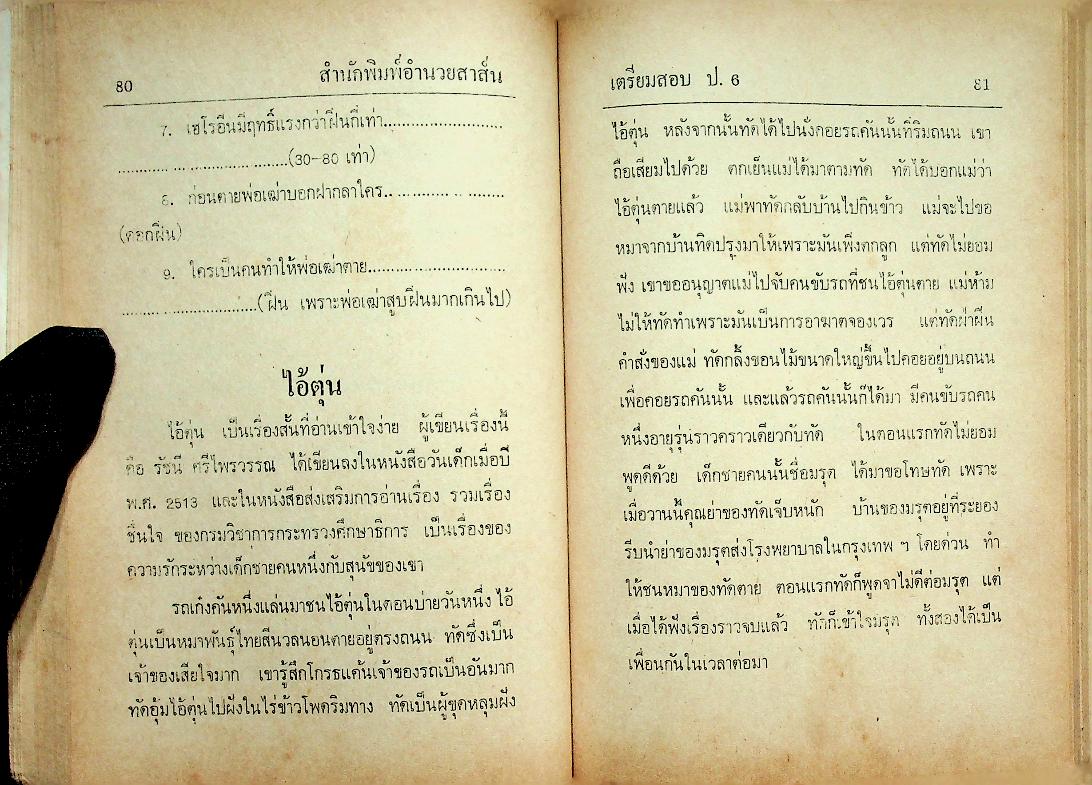 80
สำนักพิมพ์อำนวยสาส์น
7. เฮโรอีนมีฤทธิ์แรงกว่าฝิ่นกี่เท่า..............................
..............................(30-80 เท่า)
8. ก่อนตายพ่อเฒ่าบอกฝากลาใคร..............................
(ดอกฝิ่น)
9. ใครเป็นคนทำให้พ่อเฒ่าตาย..............................
..............................(ฝิ่น เพราะพ่อเฒ่าสูบฝิ่นมากเกินไป)
ไอ้ตุ่น
ไอ้ตุ่น เป็นเรื่องสั้นที่อ่านเข้าใจง่าย ผู้เขียนเรื่องนี้
คือ รัชนี ศรีไพรวรรณ ได้เขียนลงในหนังสือวันเด็กเมื่อปี
พ.ศ. 2513 และในหนังสือส่งเสริมการอ่านเรื่อง รวมเรื่อง
ชื่นใจ ของกรมวิชาการกระทรวงศึกษาธิการ เป็นเรื่องของ
ความรักระหว่างเด็กชายคนหนึ่งกับสุนัขของเขา
รถเก๋งคันหนึ่งแล่นมาชนไอ้ตุ่นในตอนบ่ายวันหนึ่ง ไอ้
ตุ่นเป็นหมาพันธุ์ไทยสีนวลนอนตายอยู่ตรงถนน ทัดซึ่งเป็น
เจ้าของเสียใจมาก เขารู้สึกโกรธแค้นเจ้าของรถเป็นอันมาก
ทัดอุ้มไอ้ตุ่นไปฝังในไร่ข้าวโพดริมทาง ทัดเป็นผู้ขุดหลุมฝัง
เตรียมสอบ ป. 6
81
ไอ้ตุ่น หลังจากนั้นทัดได้ไปนั่งคอยรถคันนั้นที่ริมถนน เขา
ถือเสียมไปด้วย ตกเย็นแม่ได้มาตามทัด ทัดได้บอกแม่ว่า
ไอ้ตุ่นตายแล้ว แม่พาทัดกลับบ้านไปกินข้าว แม่จะไปขอ
หมาจากบ้านทิดปรุงมาให้เพราะมันเพิ่งตกลูก แต่ทัดไม่ยอม
ฟัง เขาขออนุญาตแม่ไปจับคนขับรถที่ชนไอ้ตุ่นตาย แม่ห้าม
ไม่ให้ทัดทำเพราะมันเป็นการอาฆาตจองเวร แต่ทัดฝ่าฝืน
คำสั่งของแม่ ทัดกลิ้งขอนไม้ขนาดใหญ่ขึ้นไปคอยอยู่บนถนน
เพื่อคอยรถคันนั้น และแล้วรถคันนั้นก็ได้มา มีคนขับรถคน
หนึ่งอายุรุ่นราวคราวเดียวกับทัด ในตอนแรกทัดไม่ยอม
พูดดีด้วย เด็กชายคนนั้นชื่อมรุต ได้มาขอโทษทัด เพราะ
เมื่อวานนี้คุณย่าของทัดเจ็บหนัก บ้านของมรุตอยู่ที่ระยอง
รีบนำย่าของมรุตส่งโรงพยาบาลในกรุงเทพ ฯ โดยด่วน ทำ
ให้ชนหมาของทัดตาย ตอนแรกทัดก็พูดจาไม่ดีต่อมรุต แต่
เมื่อได้ฟังเรื่องราวจบแล้ว ทัดก็เข้าใจมรุต ทั้งสองได้เป็น
เพื่อนกันในเวลาต่อมา